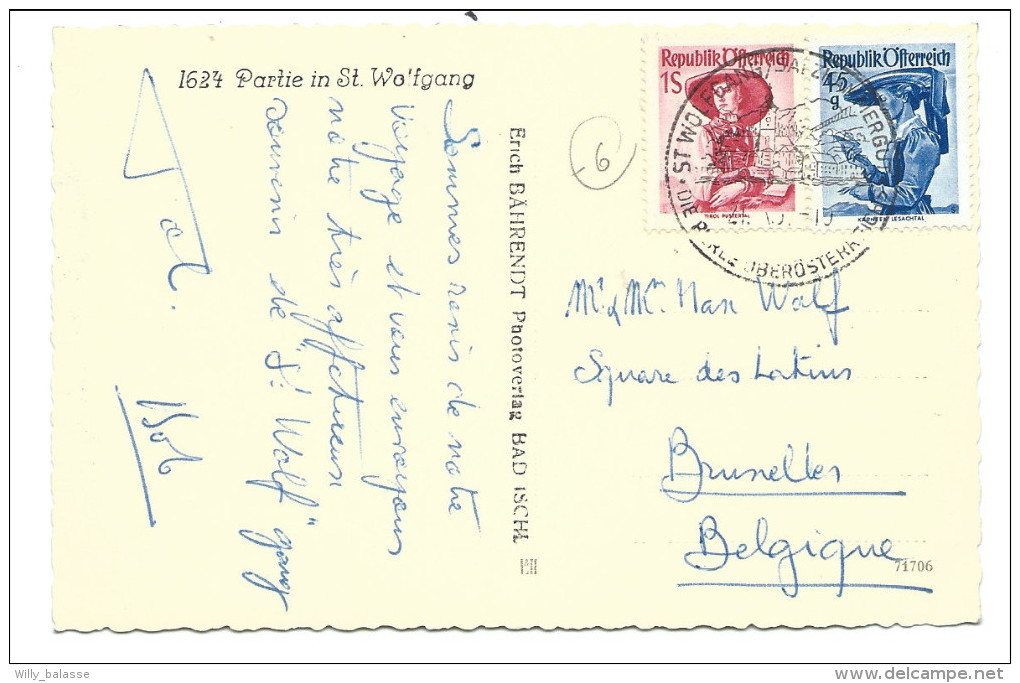 1624 Partie in St. Wolfgang
Sommes ravis de notre
voyage et vous envoyons
notre très affectueux
souvenir de St "Wolf" gang
Bob
Erich BÄHRENDT Photoverlag BAD ISCHL
6
Republik Österreich
1S
TIROL PUSTERTAL
Republik Österreich
45
g
KÄRNTEN LESACHTAL
ST WOLFGANG/SALZKAMMERGUT
DIE PERLE OBERÖSTERREICHS
Mr & Mme Max Wolf
Square des Latins
Bruxelles
Belgique
71706
Willy_balasse
delcampe.net